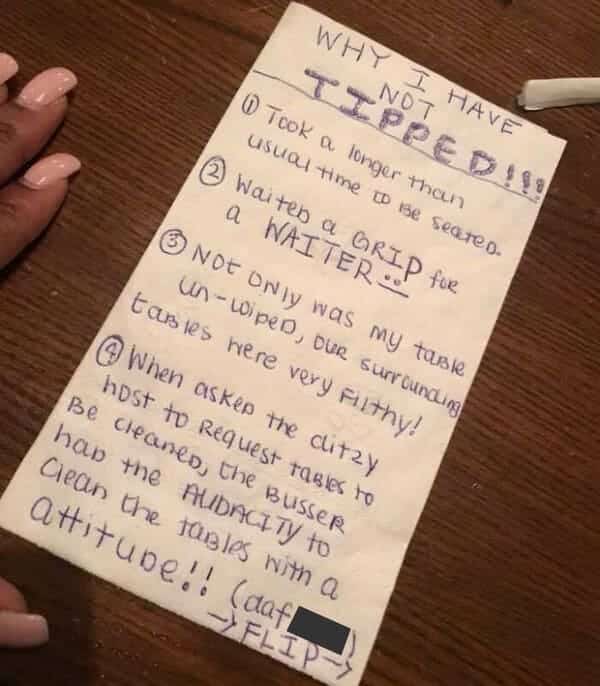 WHY I HAVE
NOT
TIPPED!!!
① Took a longer than
usual time to be seated.
② Waited a GRIP for
a WAITER :|
③ Not only was my table
un-wiped, our surrounding
tables were very filthy!
④ When asked the ditzy
host to request tables to
be cleaned, the busser
had the AUDACITY to
clean the tables with a
attitude!! (daf
→ FLIP →